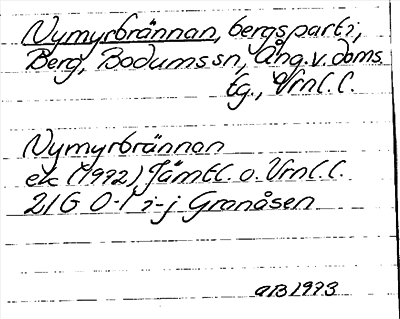 Nymyrbrännan, bergsparti,
Berg, Bodums sn, Ång. v. doms.
tg., Vrnl. l.
Nymyrbrännan
ek (1972), Jämtl. o. Vrnl. l.
21G 0-1 i-j Granåsen
aB 1973